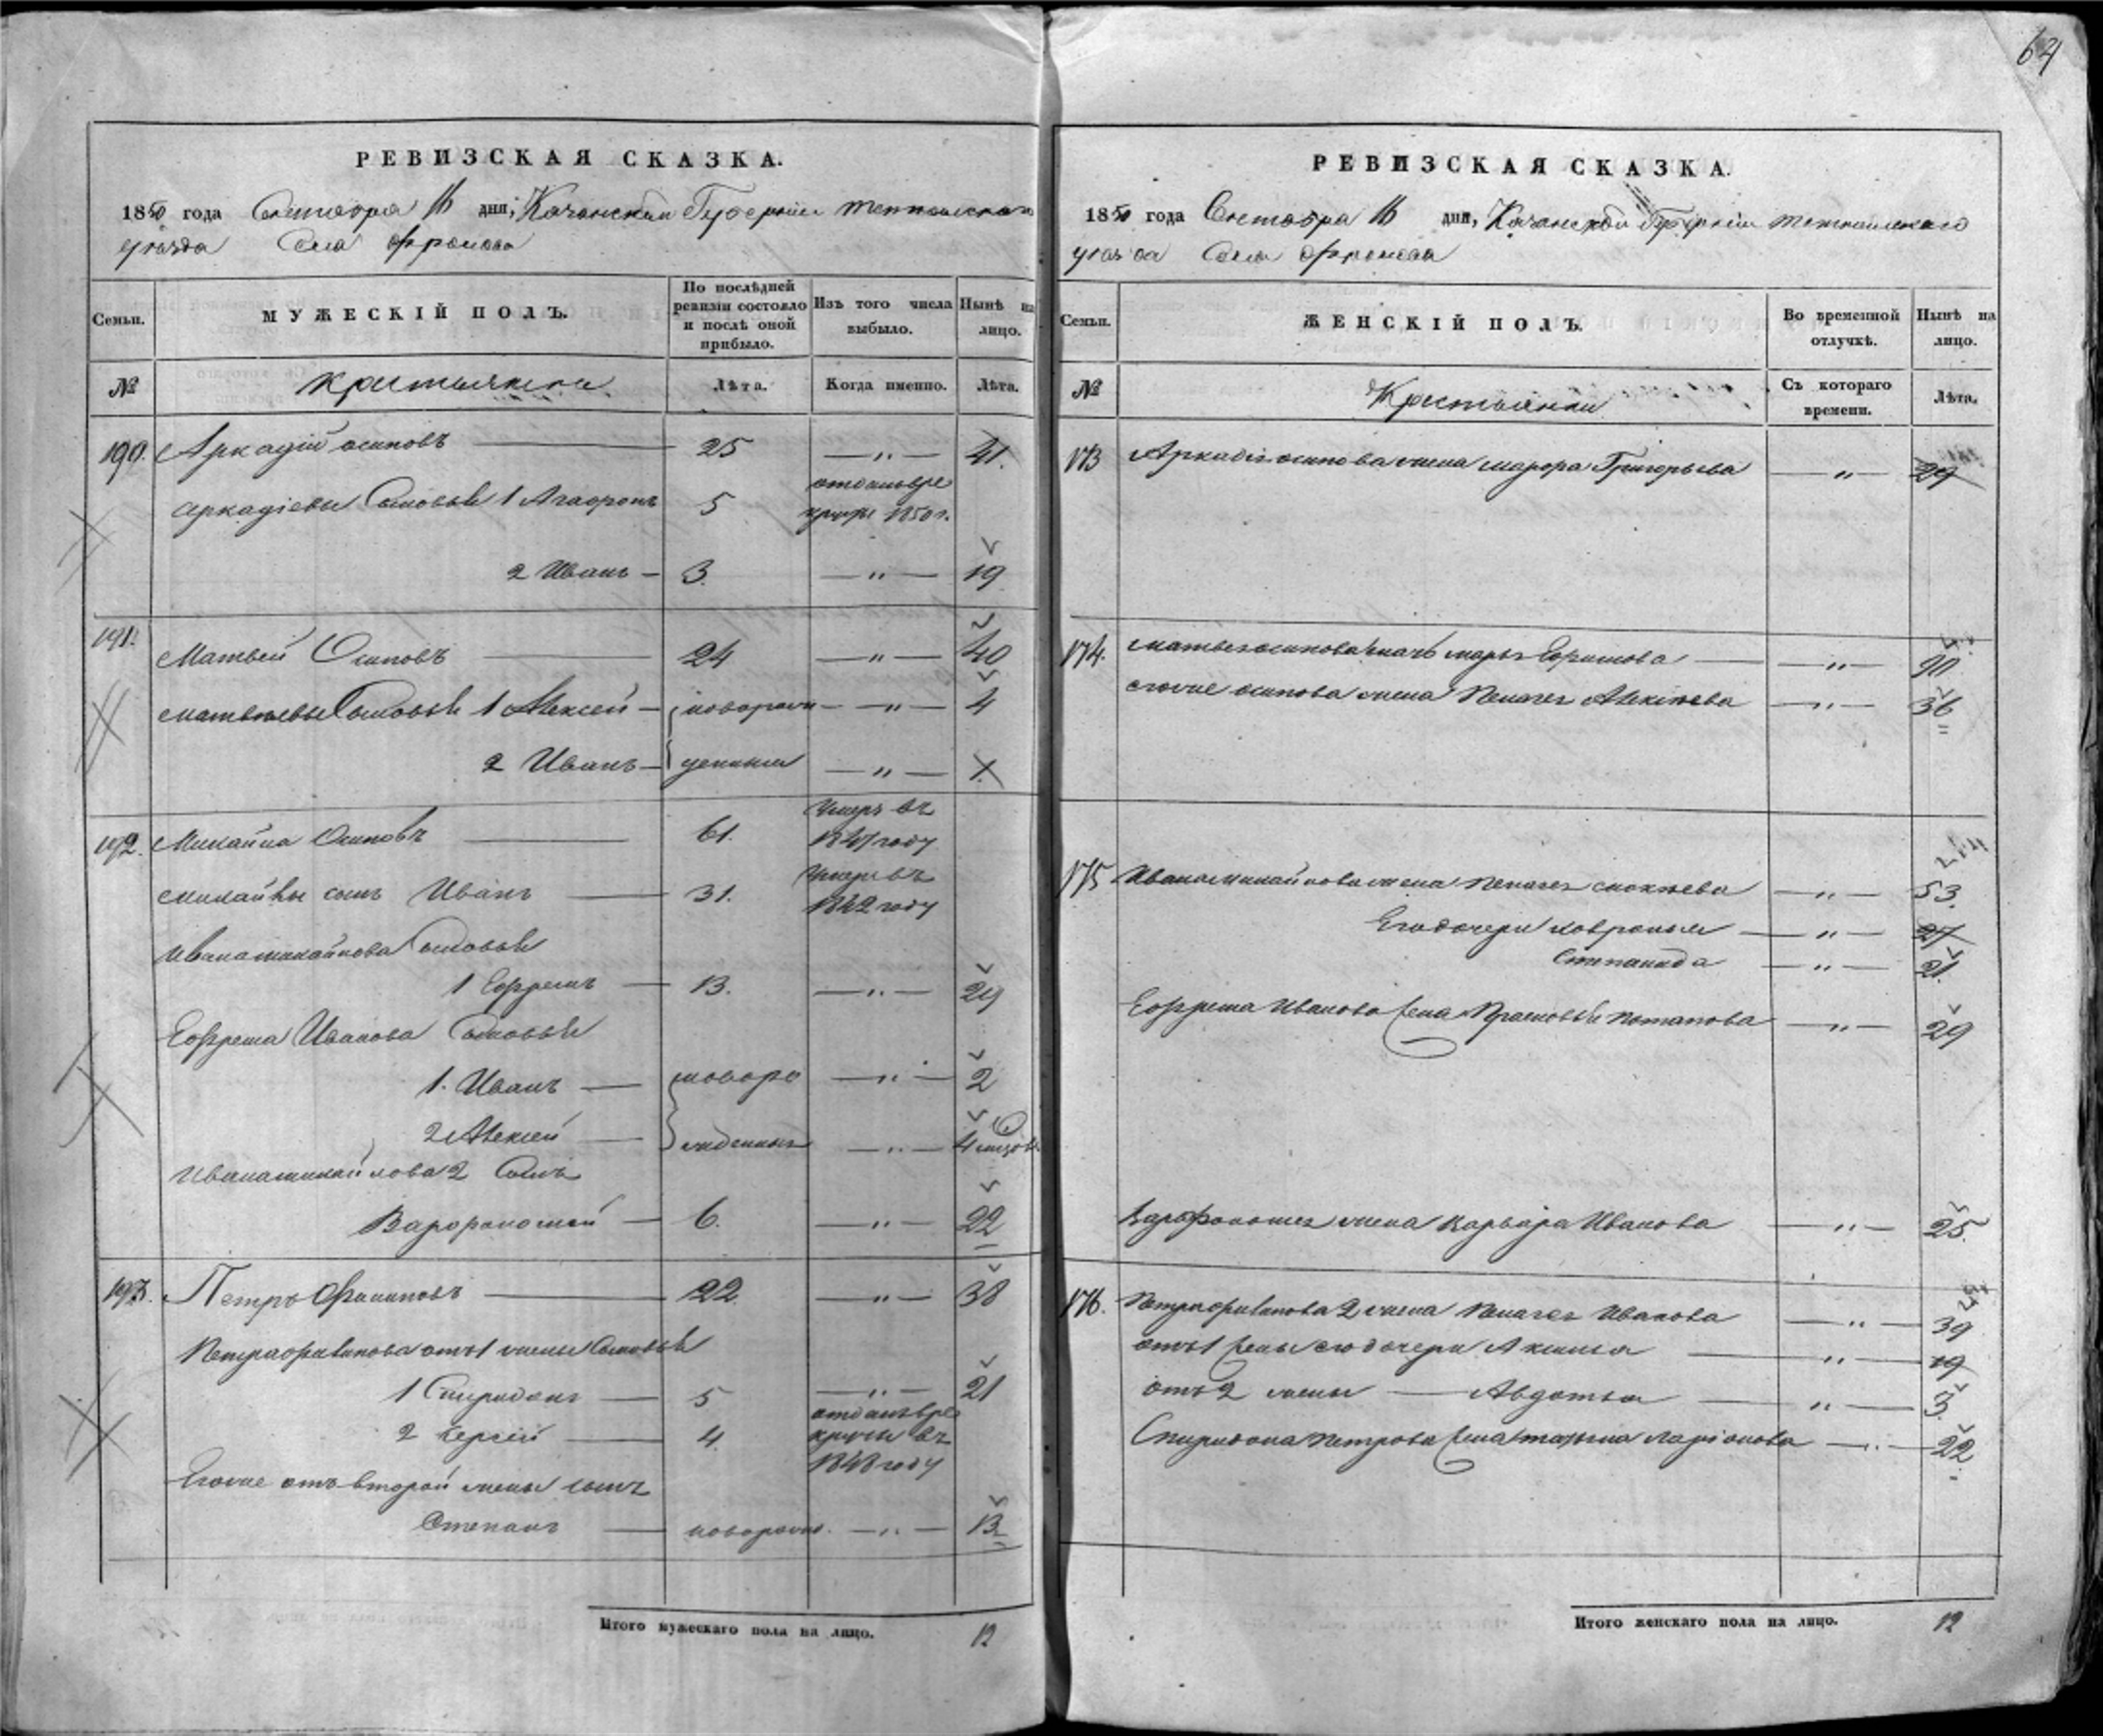 64
РЕВИЗСКАЯ СКАЗКА.
1850 года Октября 16 дня, Казанской Губерніи Тетюшскаго
уѣзда Села Фролова
Семьи. МУЖЕСКІЙ ПОЛЪ. По послѣдней ревизіи состояло и послѣ оной прибыло. Изъ того числа выбыло. Нынѣ на лицо.
№ Крестьяне Лѣта. Когда именно. Лѣта.
190. Аркадій Осиповъ 25 — " — 41.
Аркадіевы Сыновья 1 Агафонъ 5 отданъ въ ре
круты 1850 г.
2 Иванъ — 3. — " — 19
191. Матвей Осиповъ 24 — " — 40
Матвѣевы Сыновья 1 Алексей — новорож — " — 4
2 Иванъ — денныя — " — 1
192. Михайла Осиповъ 61. Умеръ въ
1847 году
Михайлы сынъ Иванъ 31. Умеръ въ
1842 году
Ивана Михайлова Сыновья
1 Ефремъ — 13. — " — 29
Ефрема Иванова Сыновья
1. Иванъ — новоро — " — 2
2 Алексей — жденныя — " — 4 месяцов.
Ивана Михайлова 2 Сынъ
Варфоломей — 6. — " — 22
193. Петръ Филиповъ 22. — " — 38
Петра Филипова отъ 1 жены Сыновья
1 Спиридонъ — 5 — " — 21
2 Сергій — 4. отданъ въ ре
круты въ
1848 году
Его же отъ второй жены сынъ
Степанъ — новорож. — " — 13
Итого мужескаго пола на лицо. 12
РЕВИЗСКАЯ СКАЗКА.
1850 года Октября 16 дня, Казанской Губерніи Тетюшскаго
уѣзда Села Фролова
Семьи. ЖЕНСКІЙ ПОЛЪ. Во временной отлучкѣ. Нынѣ на лицо.
№ Крестьянки Съ котораго времени. Лѣта.
173 Аркадія Осипова жена Григорьева — " — 29
174. Матвея Осипова мать Марья Ефимова — " —
Его же Осипова жена Пелагея Алексѣева — " — 36
175 Ивана Михайлова жена Пелагея — " — 53.
Его дочери Ховронья — " — 27
Степанида — " — 21.
Ефрема Иванова жена Прасковья Потапова — " — 29
Варфоломея жена Варвара Иванова — " — 25.
176. Петра Филипова 2 жена Пелагея Иванова — " — 39
отъ 1 жены его дочери Аксинья — " — 19
отъ 2 жены — Авдотья — " — 3.
Спиридона Петрова жена Татьяна Ларіонова — " — 22.
Итого женскаго пола на лицо. 12